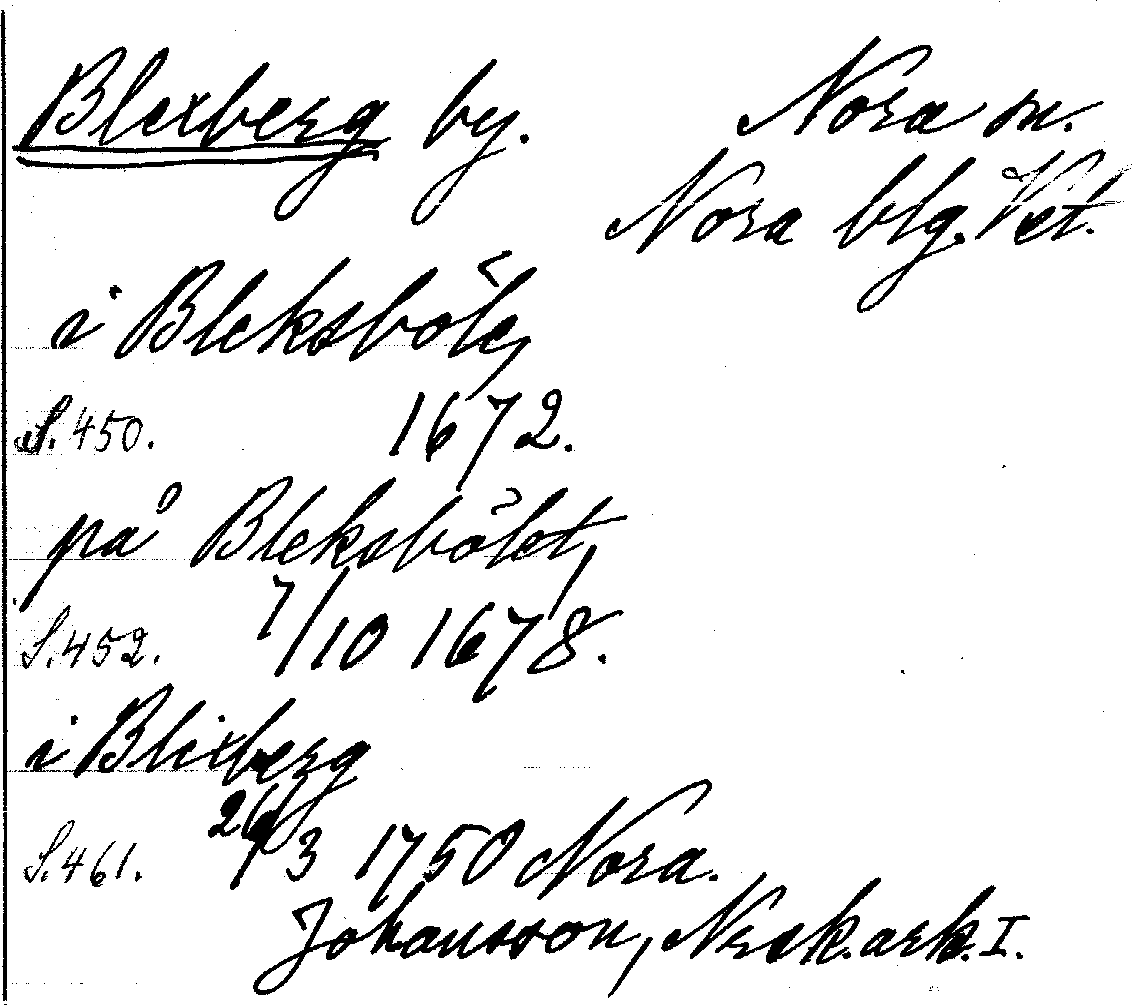 Blexberg by. Nora sn.
Nora blg. Vst.
i Bleksböle,
S. 450. 1672.
på Bleksbölet,
S. 452. 7/10 1678.
i Blixberg
S. 461. 26/3 1750 Nora.
Johansson, Nrsk. ark. I.